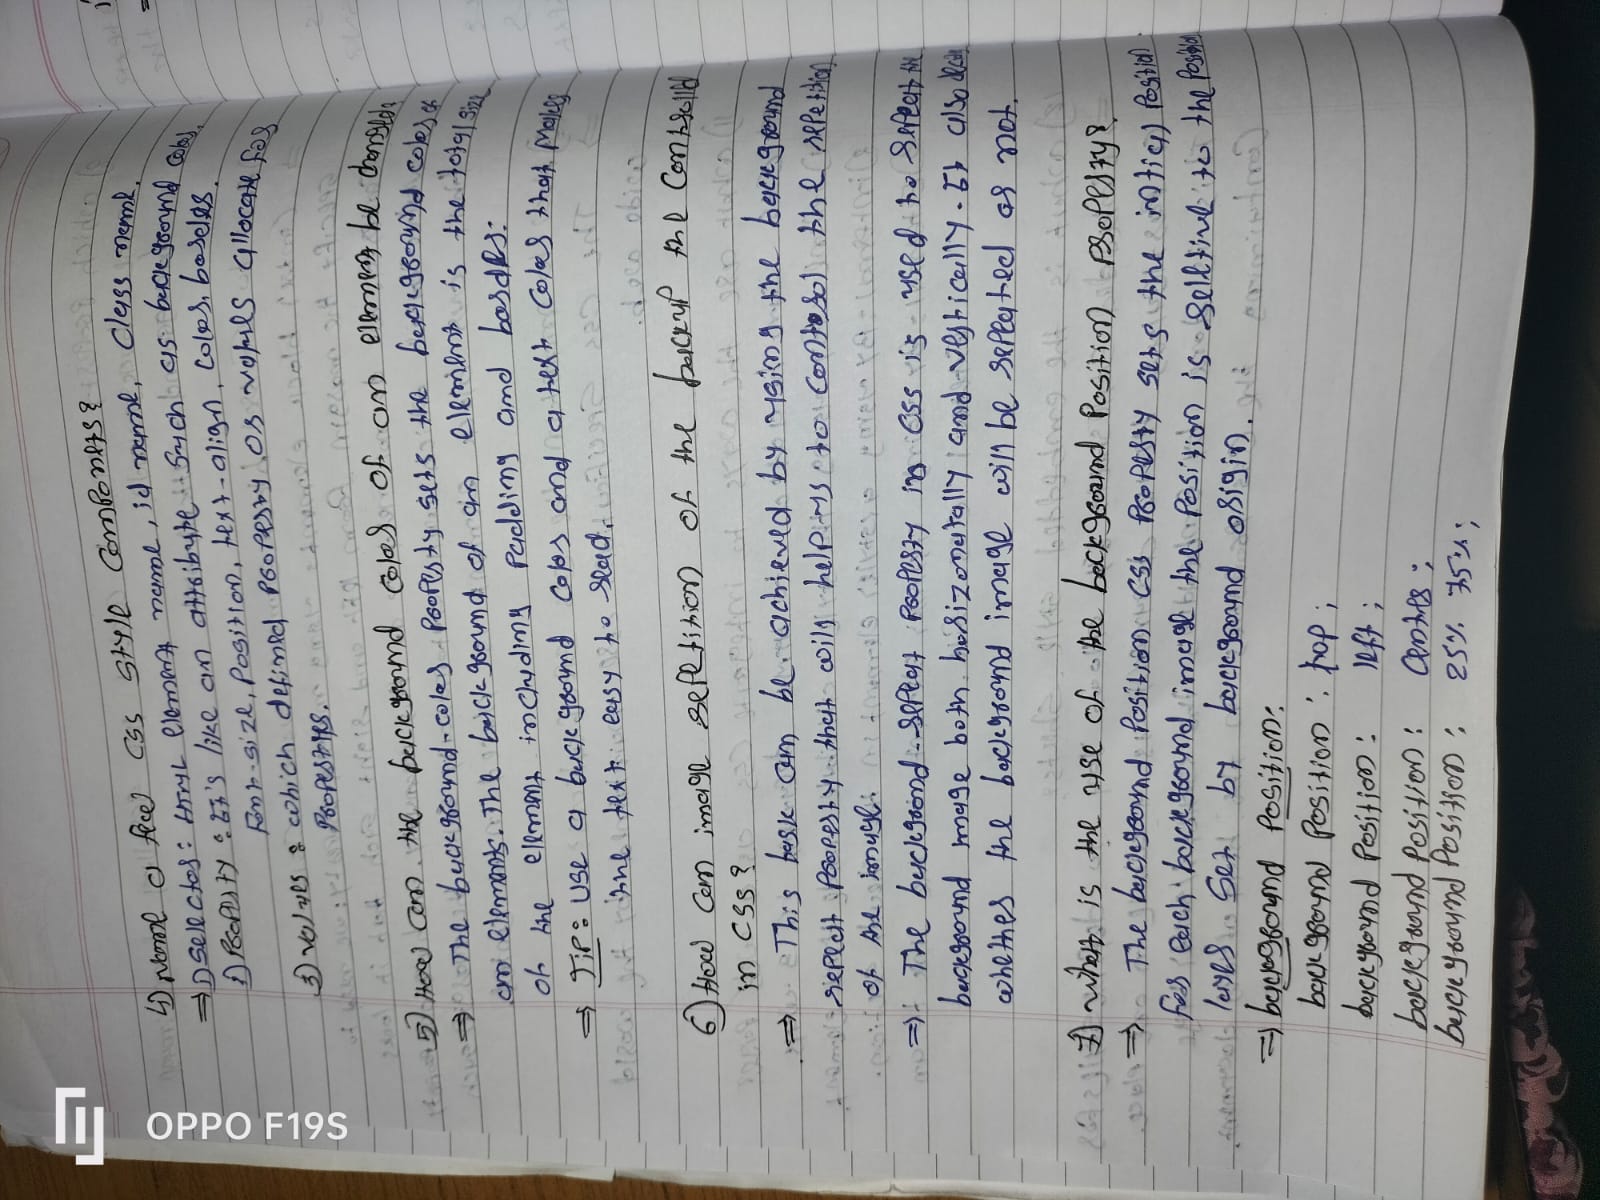 4) Name a few CSS style components?
⇒ 1) Selector: html element name, id name, class name.
2) Property: It's like an attribute such as background color,
Font-size, position, text-align, color, border.
3) values: which defined property or values allocate for
properties.
5) How can the background color of an element be
⇒ The background-color property sets the background color of
an element. The background of an element is the total size
of the element including padding and border.
⇒ TIP: Use a background color and a text color that makes
the text easy to read.
6) How can image repetition of the backup the controlled
in CSS?
⇒ This can be achieved by using the background
repeat property that will helps to control the repetition
of the image.
⇒ The background-repeat property in CSS is used to repeat the
background image both horizontally and vertically. It also
whether the background image will be repeated or not.
7) what is the use of the background position property?
⇒ The background position CSS property sets the initial position
for each background image the position is relative to the position
layer set by background origin.
⇒ background position:
background position: top;
background position: left;
background position: center;
background position: 25% 75%;
OPPO F19S